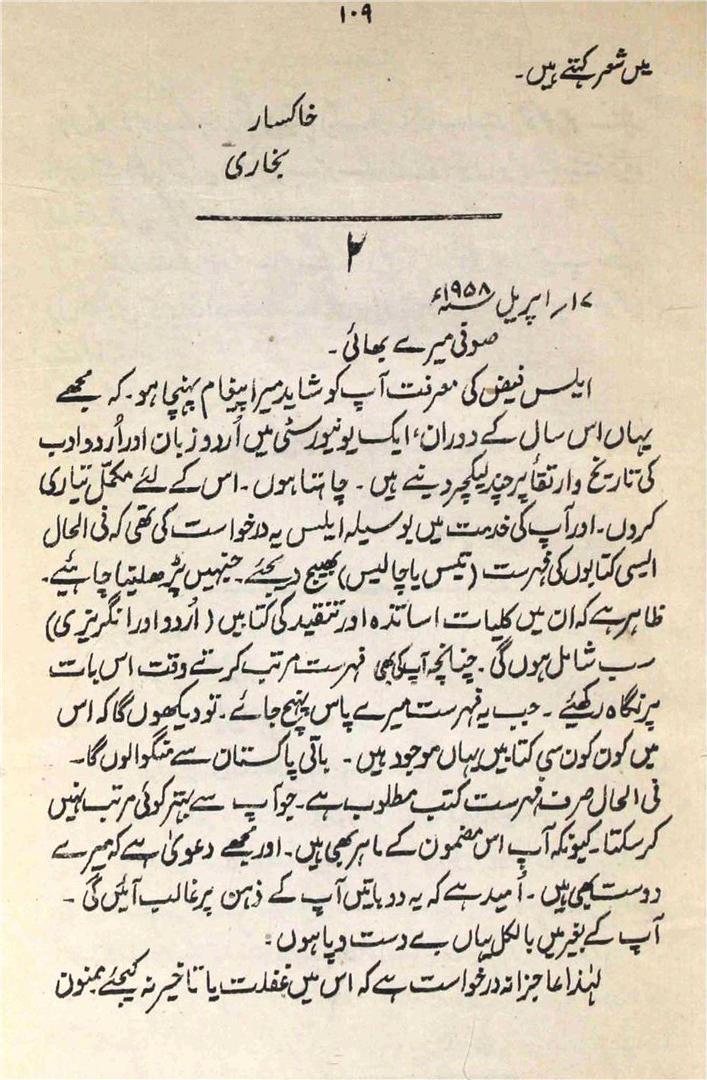 ۱۰۹
میں شعر کہتے ہیں۔
خاکسار
بخاری
۲
۱۷ر اپریل ۱۹۵۸ء
صوفی میرے بھائی۔
ایلس فیض کی معرفت آپ کو شاید میرا پیغام پہنچا ہو۔ کہ مجھے
یہاں اس سال کے دوران، ایک یونیورسٹی میں اُردو زبان اور اُردو ادب
کی تاریخ و ارتقأ پر چند لیکچر دینے ہیں۔ چاہتا ہوں۔ اس کے لئے مکمّل تیاری
کردوں۔ اور آپ کی خدمت میں بوسیلہ ایلس یہ درخواست کی تھی کہ فی الحال
ایسی کتابوں کی فہرست (تیس یا چالیس) بھیج دیجئے۔ جنہیں پڑھ لینا چاہئیے۔
ظاہر ہے کہ ان میں کلیات اساتذہ اور تنقید کی کتابیں (اُردو اور انگریزی)
سب شامل ہوں گی۔ چنانچہ آپ کی بھی فہرست مرتب کرتے وقت اس بات
پر نگاہ رکھیئے۔ جب یہ فہرست میرے پاس پہنچ جائے۔ تو دیکھوں گا کہ اس
میں کون کون سی کتابیں یہاں موجود ہیں۔ باقی پاکستان سے منگوالوں گا۔
فی الحال صرف فہرست کتب مطلوب ہے۔ جو آپ سے بہتر کوئی مرتب نہیں
کر سکتا۔ کیونکہ آپ اس مضمون کے ماہر بھی ہیں۔ اور مجھے دعویٰ ہے کہ میرے
دوست بھی ہیں۔ اُمید ہے کہ یہ دو باتیں آپ کے ذہن پر غالب آئیں گی۔
آپ کے بغیر میں بالکل یہاں بے دست و پا ہوں۔
لہٰذا عاجزانہ درخواست ہے کہ اس میں غفلت یا تاخیر نہ کیجئے ممنون